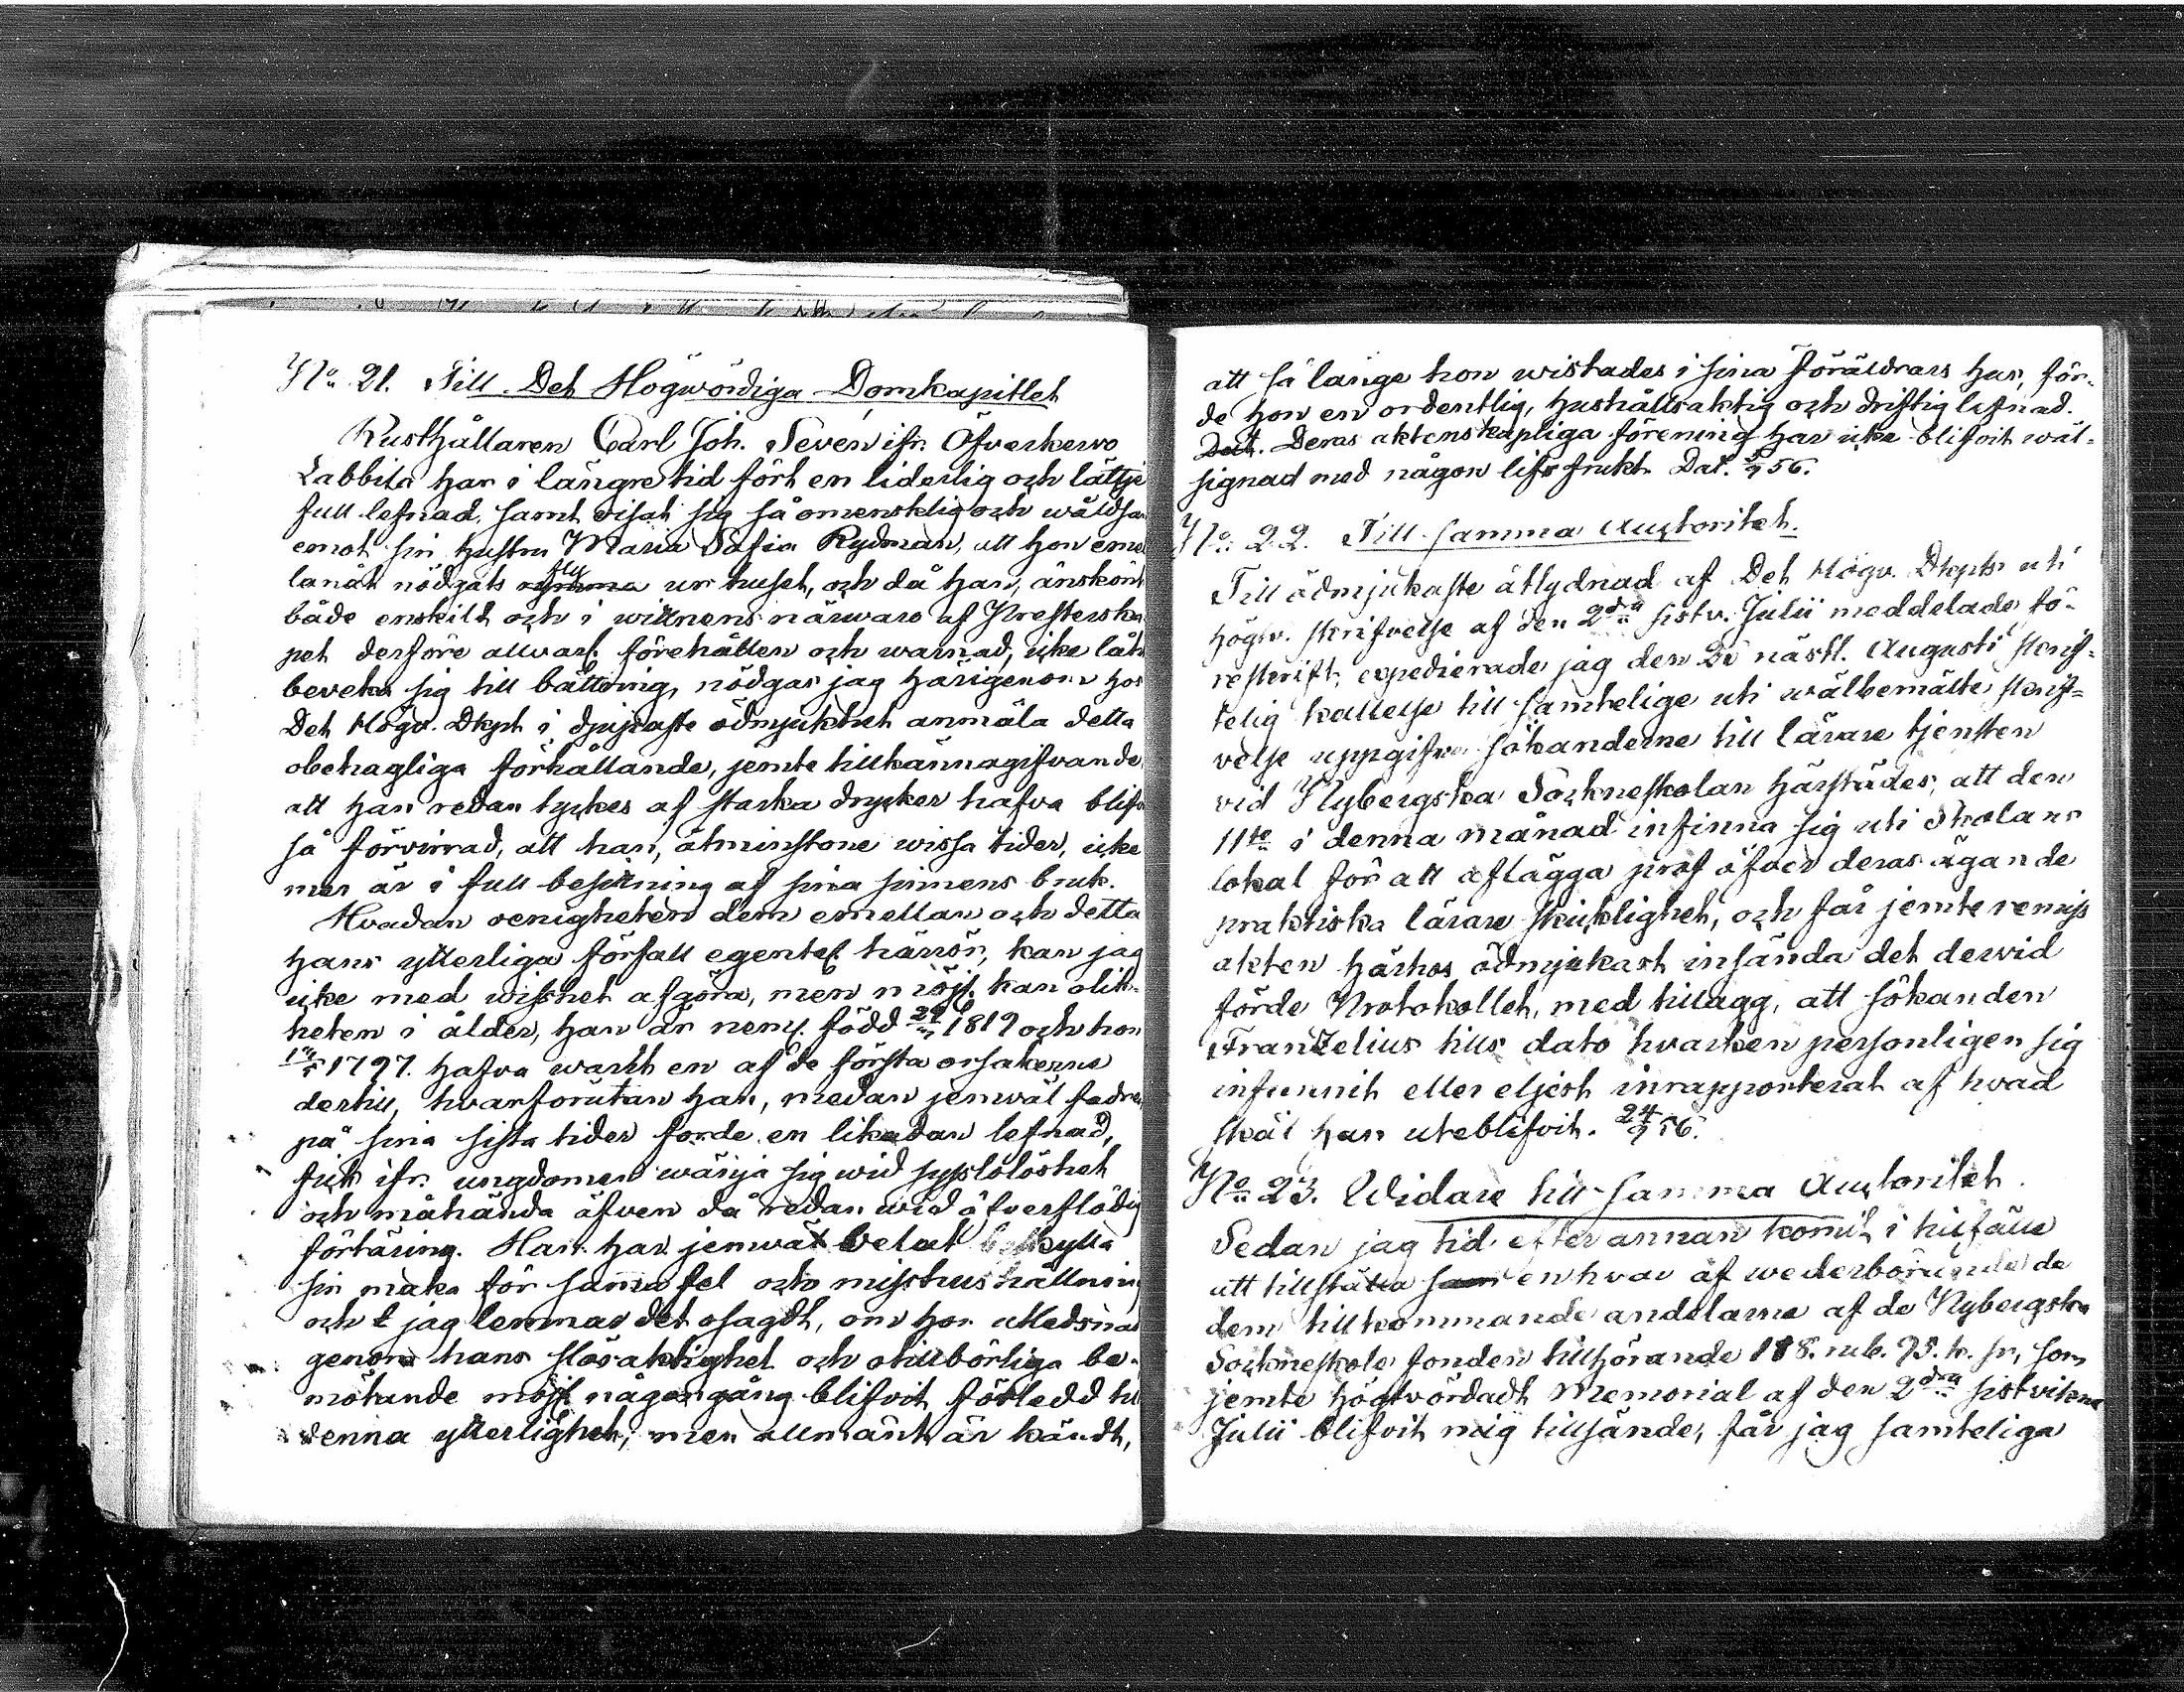 No 21. Till Det Högwördiga Domkapitlet
Rusthållaren Carl Joh. Seven ifr. Öfverkervo
Labbila har i längre tid fört en liderlig och lättje
full lefnad, samt visat sig så omensklig och wåldsam
emot sin hustru Maria Sofia Rydman, att hon eme
lanåt nödgats fly ur huset, och då han, änskönt
både enskilt och i wittnens närwaro af Presterska
pet derföre allvarl. förehållen och warnad, icke låtit
beveka sig till bättring, nödgas jag härigenom hos
Det Högv. Dkpt i djupaste ödmjukhet anmäla detta
obehagliga förhållande, jemte tillkännagifvande
att han redan tyckes af starka drycker hafva blifv
så förvirrad, att han, åtminstone wissa tider, icke
mer är i full besittning af sina sinnens bruk.
Hvadan oenigheten dem emellan och detta
hans ytterliga förfall egentel. härrör, kan jag
icke med wisshet afgöra, men möjl. kan olik-
heten i ålder, han är neml. född 1819 och hon
1797. hafva warit en af de första orsakerna
dertill, hvarförutan han, medan jemwäl fadren
på sina sista tider förde en likadan lefnad,
fick ifr. ungdomen wänja sig wid sysslolöshet
och måhända äfven då redan wid öfverflödig
förtäring. Han har jemwäl velat beskylla
sin maka för samma fel och misshushållning
och jag lemnar det osagdt, om hon utledsnad
genom hans slösaktighet och otillbörliga be-
mötande möjl någongång blifvit förledd till
denna ytterlighet, men allmänt är kändt,
att så länge hon wistades i sina föräldrars hus, för-
de hon en ordentlig, hushållsaktig och driftig lefnad.
Dat. Deras äktenskapliga förening har icke blifvit wäl-
signad med någon lifs frukt. Dat. 56.
No 22. Till samma Auctoritet.
Till ödmjukaste åtlydnad af Det Högv. Dkpts uti
högtv. skrifvelse af den 2dra sistv. Julii meddelade fö-
reskrift, expedierade jag den näst. Augusti skrif-
telig kallelse till samtelige uti wälbemälte skrif-
velse uppgifva sökanderne till lärare tjensten
vid Nybergska Sockneskolan härstädes, att den
11te i denna månad infinna sig uti Skolans
lokal för att aflägga prof öfver deras ägande
praktiska lärare skicklighet, och får jemte remiss
akten härhos ödmjukast insända det dervid
förde Protokollet, med tillägg, att sökanden
Franzelius tills dato hvarken personligen sig
infunnit eller eljest inrapporterat af hvad
skäl han uteblifvit. 24/9 56.
No 23. Widare till samma Auctoritet.
Sedan jag tid efter annan komit i tillfälle
att tillställa enhvar af wederbörande de
dem tillkommande andelarne af de Nybergska
Sockneskole fonden tillhörande 188. rub. 93. k. sr, som
jemte högtvördadt Memorial af den 2dra sistvikne
Julii blifvit mig tillsände, får jag samteliga